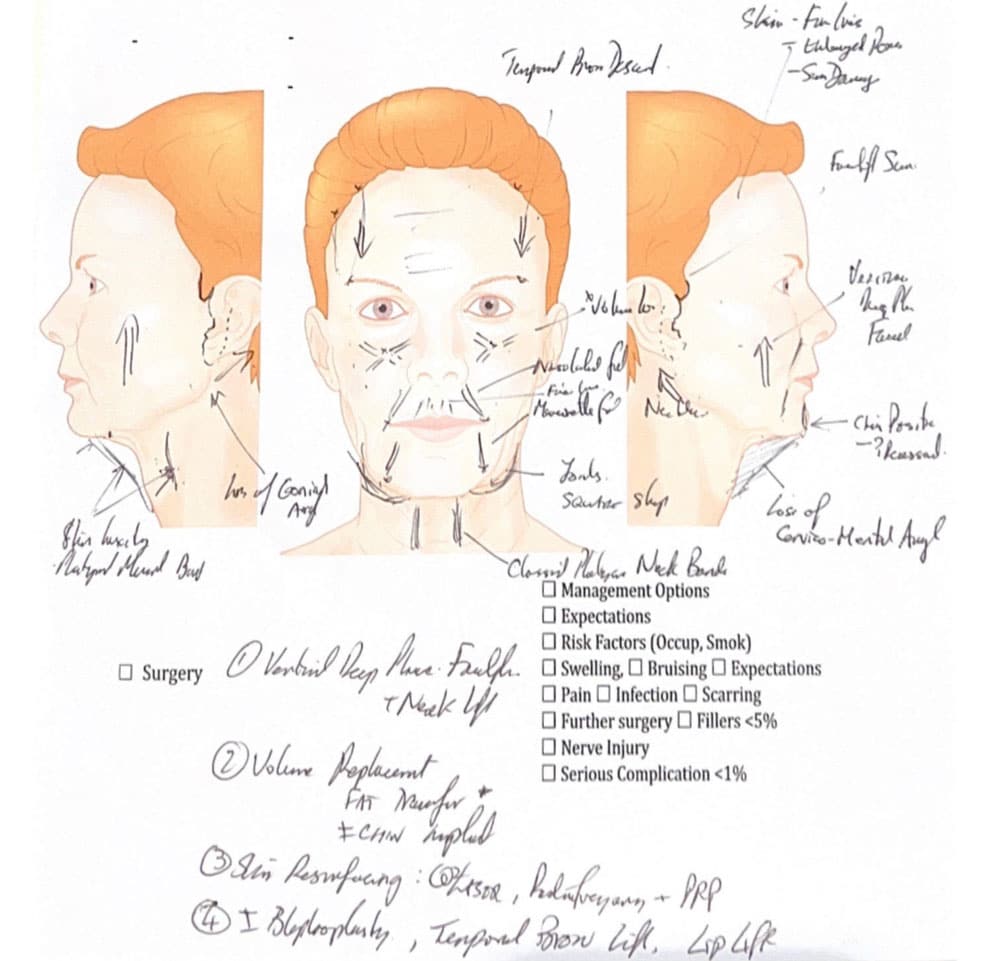 Skin - Fine lines
- Enlarged Pores
- Sun Damage
Temporal Brow Descent
Facelift Scar
Vertical
Deep Plane
Facelift
Volume lo
Nasolabial fol
Fine lines
Marionette fol
Neck
Chin Position
- ? Recessed
Jowls
Squarer shap
Loss of Gonial
Angl
Loss of
Cervico-Mental Angl
Skin laxity
Neck Bands
☐ Management Options
☐ Expectations
☐ Risk Factors (Occup, Smok)
☐ Swelling, ☐ Bruising ☐ Expectations
☐ Pain ☐ Infection ☐ Scarring
☐ Further surgery ☐ Fillers <5%
☐ Nerve Injury
☐ Serious Complication <1%
☐ Surgery ① Vertical Deep Plane Facelift
+ Neck Lift
② Volume Replacement
FAT Transfer
± CHIN implant
③ Skin Resurfacing : CO₂ LASER, + PRP
④ ± Blepharoplasty, Temporal Brow Lift, Lip Lift